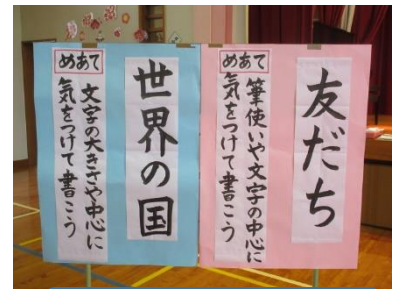 友だち
めあて
筆使いや文字の中心に
気をつけて書こう
世界の国
めあて
文字の大きさや中心に
気をつけて書こう